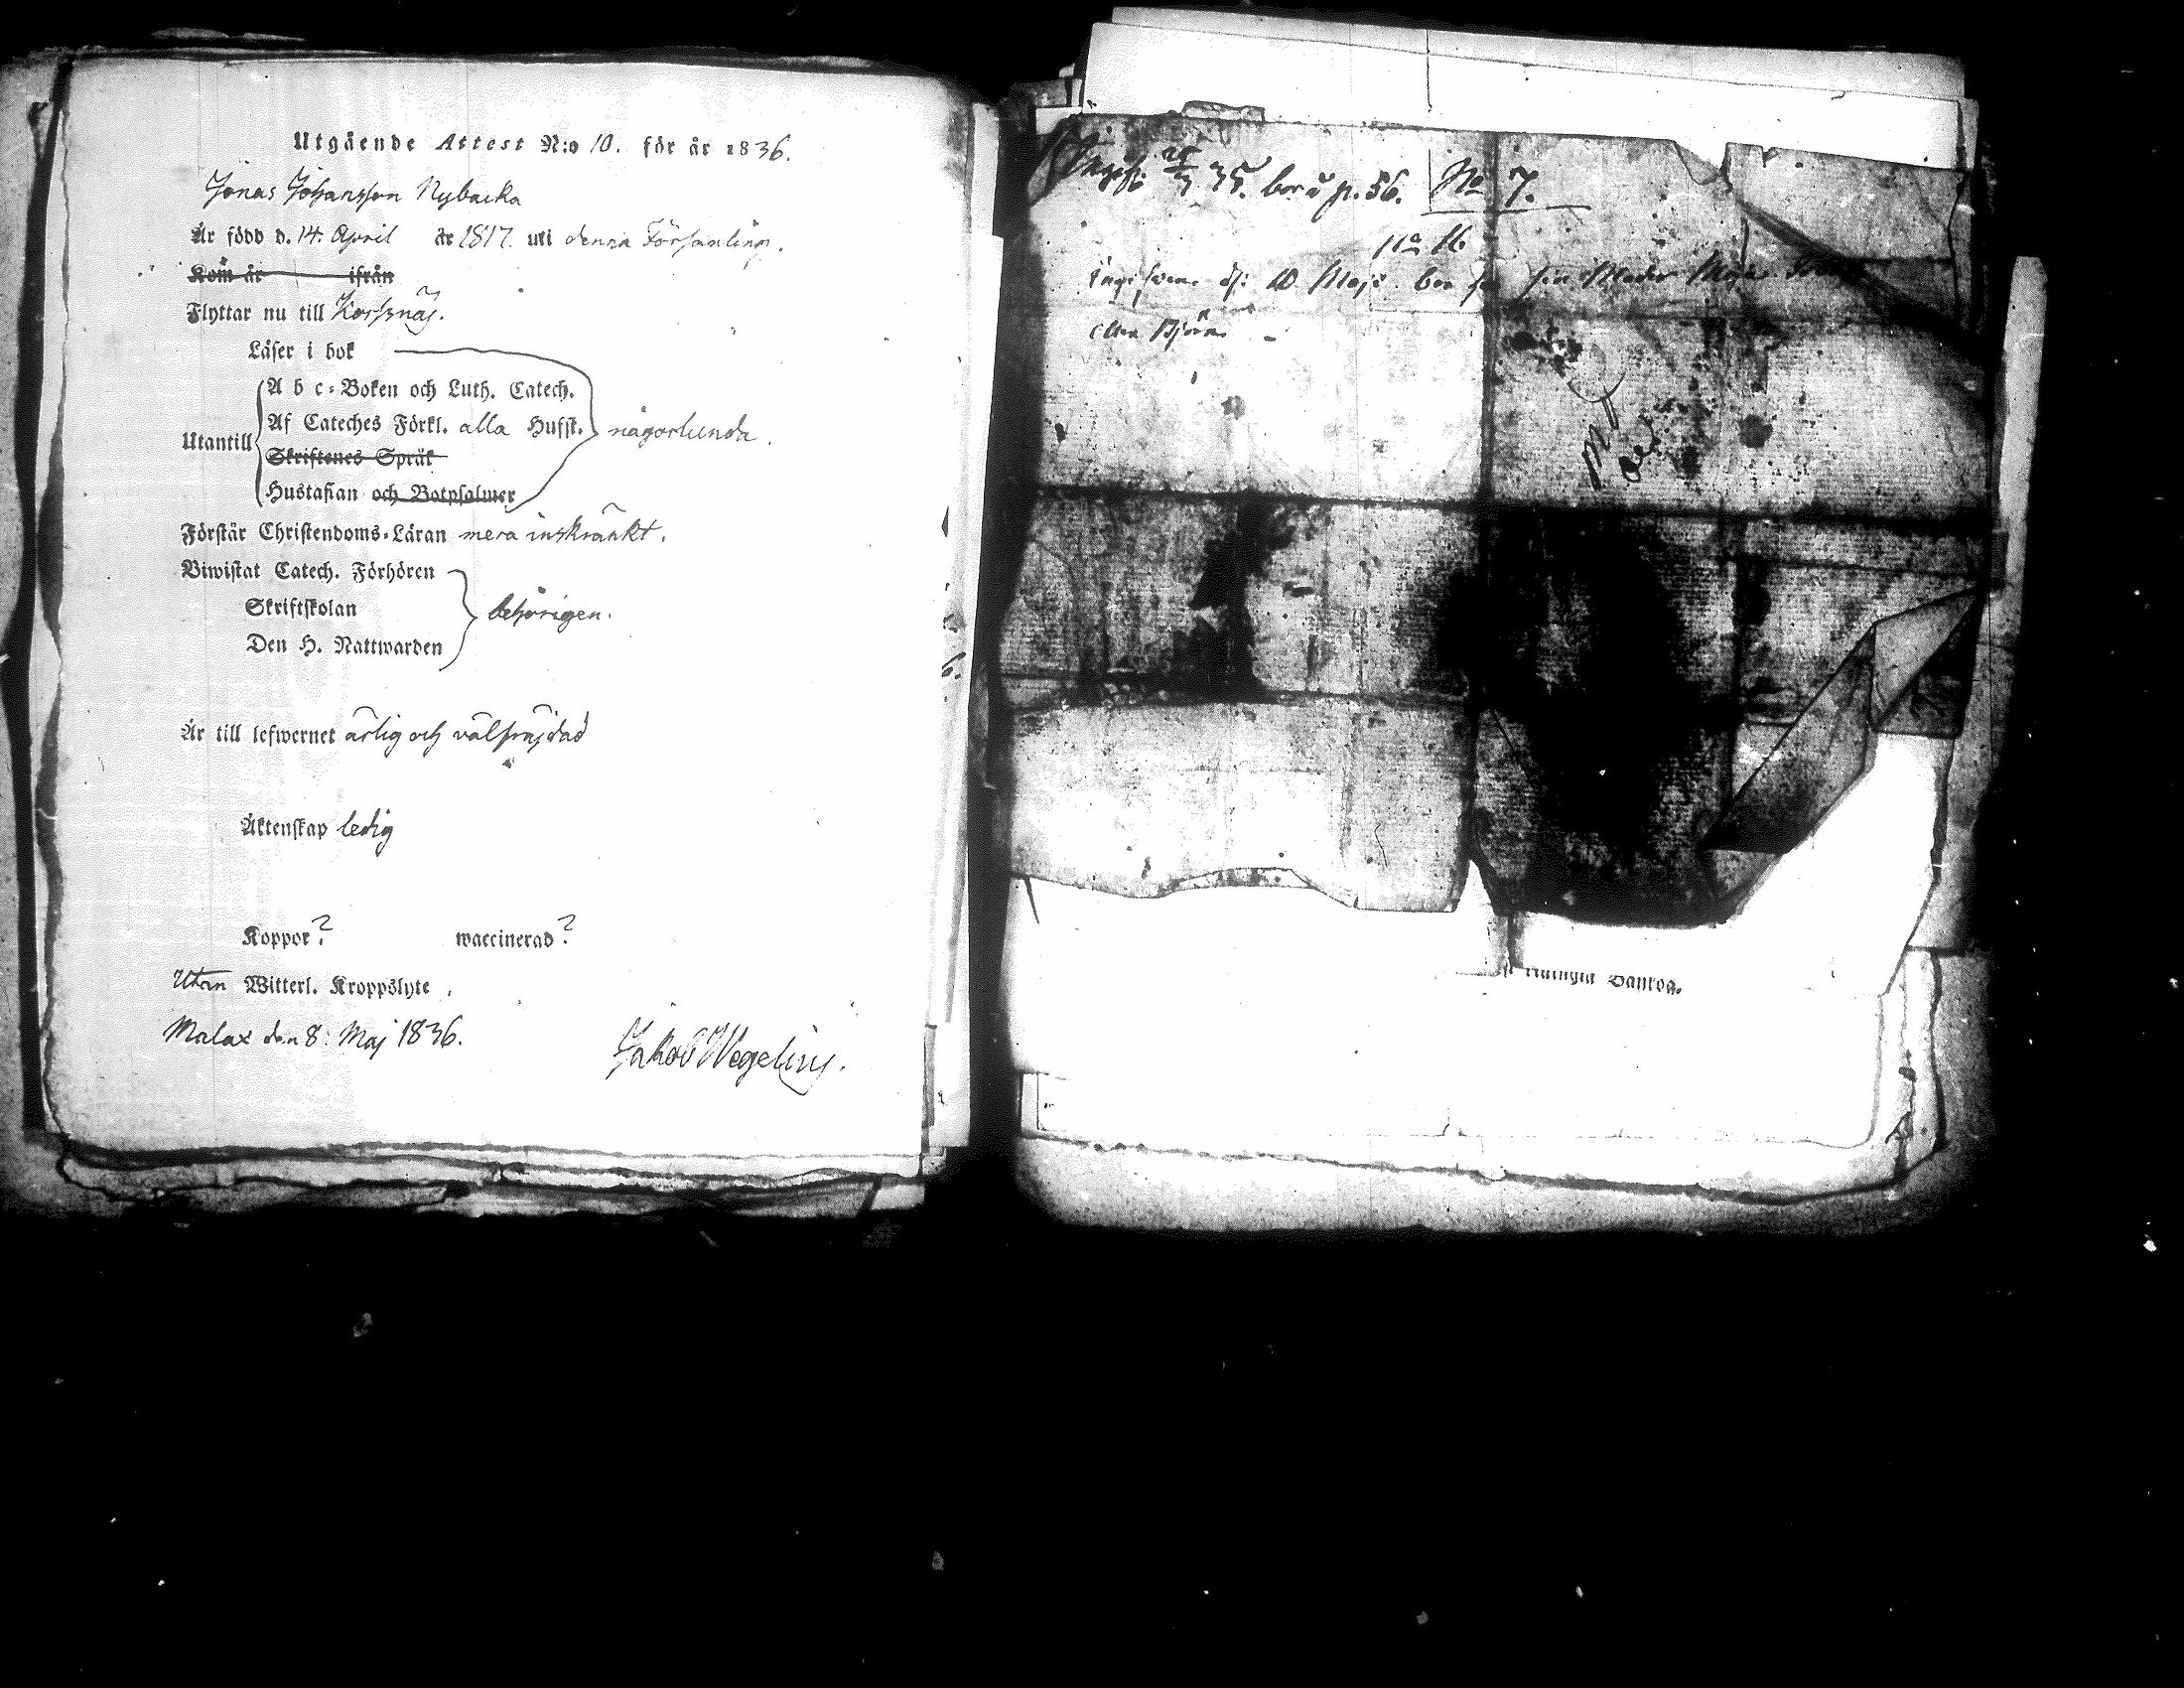 Utgående Attest N:o 10. för år 1836.
Jonas Johansson Nybacka
Är född d. 14. April år 1817. uti denna Församling.
Kom år ifrån
Flyttar nu till Korsnäs.
Läser i bok
A b c-Boken och Luth. Catech.
Af Cateches Förkl. alla Hufst. någorlunda.
Utantill
Skriftenes Språk
Hustaflan och Botpsalmer
Förstår Christendoms-Läran mera inskränkt.
Biwistat Catech. Förhören
Skriftskolan behörigen.
Den H. Nattwarden
Är till lefwernet ärlig och välfräjdad
Äktenskap ledig
Koppor? waccinerad?
Utan Witterl. Kroppslyte.
Malax den 8: Maj 1836.
Jakob Wegelius.
35. bor å p. 56. No 7.
Maji bor
eller Björn